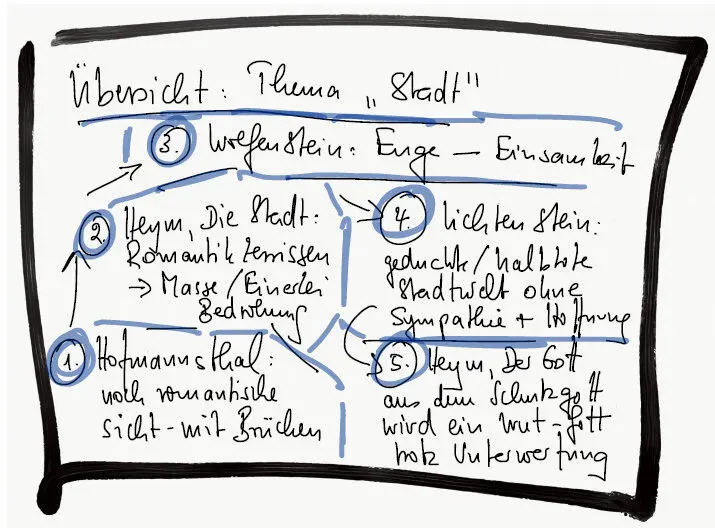 Übersicht: Thema „Stadt"
3. Wolfenstein: Enge – Einsamkeit
2. Heym, Die Stadt:
Romantik zerrissen
→ Masse/Einerlei
Bedrohung
1. Hofmannsthal:
noch romantische
Sicht-mit Brüchen
4. Lichtenstein:
geduckte/halbtote
Stadtwelt ohne
Sympathie + Hoffnung
5. Heym, Der Gott
aus dem Schutzgott
wird ein Wut-Gott
trotz Unterwerfung